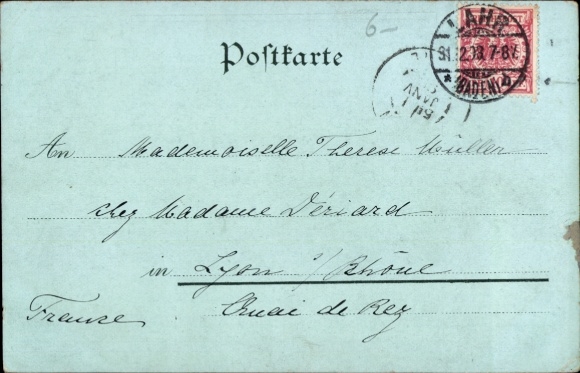 6-
LAHR
31.12.98.7-8V.
* (BADEN) b
Postkarte
1 JANV
An Mademoiselle Therese Müller
chez Madame Dériard
in Lyon s/Rhône
Quai de Rez
France